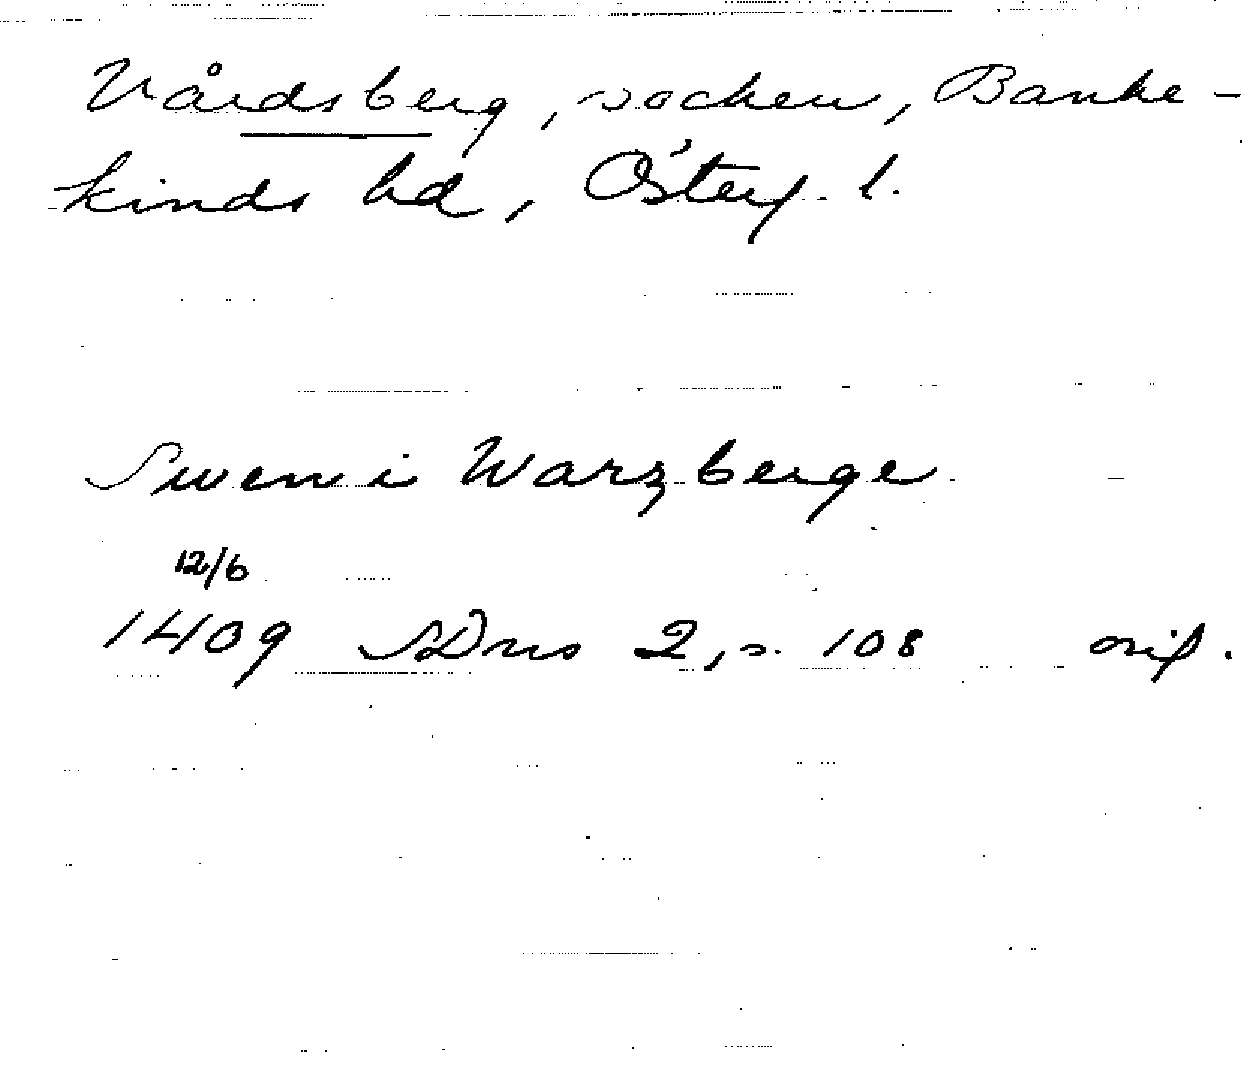 Vårdsberg, socken, Banke-
kinds hd, Österg. l.
Swen i Warzberge
12/6
1409 SDns 2, s. 108 orig.